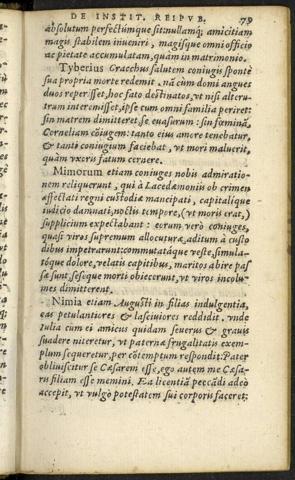 DE INSTIT. REIPVB. 79
absolutum perfectúmque sit: nullamq; amicitiam
magis stabilem inueniri, magisque omni officio
ac pietate accumulatam, quàm in matrimonio.
Tyberius Gracchus salutem coniugis spontè
sua propria morte redemit. nā cùm domi angues
duos reperisset, hoc fato destinatos, vt nisi alteru-
trum intercmisset, ipse cum omni familia periret:
sin matrem dimitteret se euasurum: sin fœminā,
Corneliam cōiugem: tanto eius amore tenebatur,
& tanti coniugium faciebat, vt mori malucrit,
quàm vxoris fatum cernere.
Mimorum etiam coniuges nobis admiratio-
nem reliquerunt, qui à Lacedæmoniis ob crimen
affectati regni custodiæ mancipati, capitalique
iudicio damnati, noctis tempore, (vt moris erat,)
supplicium expectabant: eorum verò coniuges,
quasi viros supremum allocuturæ, aditum à custo
dibus impetrarunt: commutatáque veste, simula-
tóque dolore, velatis capitibus, maritos abire pas
sæ sunt, sesêque morti obiecerunt, vt viros incolu-
mes dimitterent.
Nimia etiam Augusti in filias indulgentia,
eas petulantiores & lasciuiores reddidit. vnde
Iulia cùm ei amicus quidam seuerus & grauis
suadere niteretur, vt paternæ frugalitatis exem-
plum sequeretur, per cōtemptum respondit: Pater
obliuiscitur se Cæsarem esse, ego autem me Cæsa-
ris filiam esse memini. Ea licentiā peccādi adeò
accepit, vt vulgò potestatem sui corporis faceret: